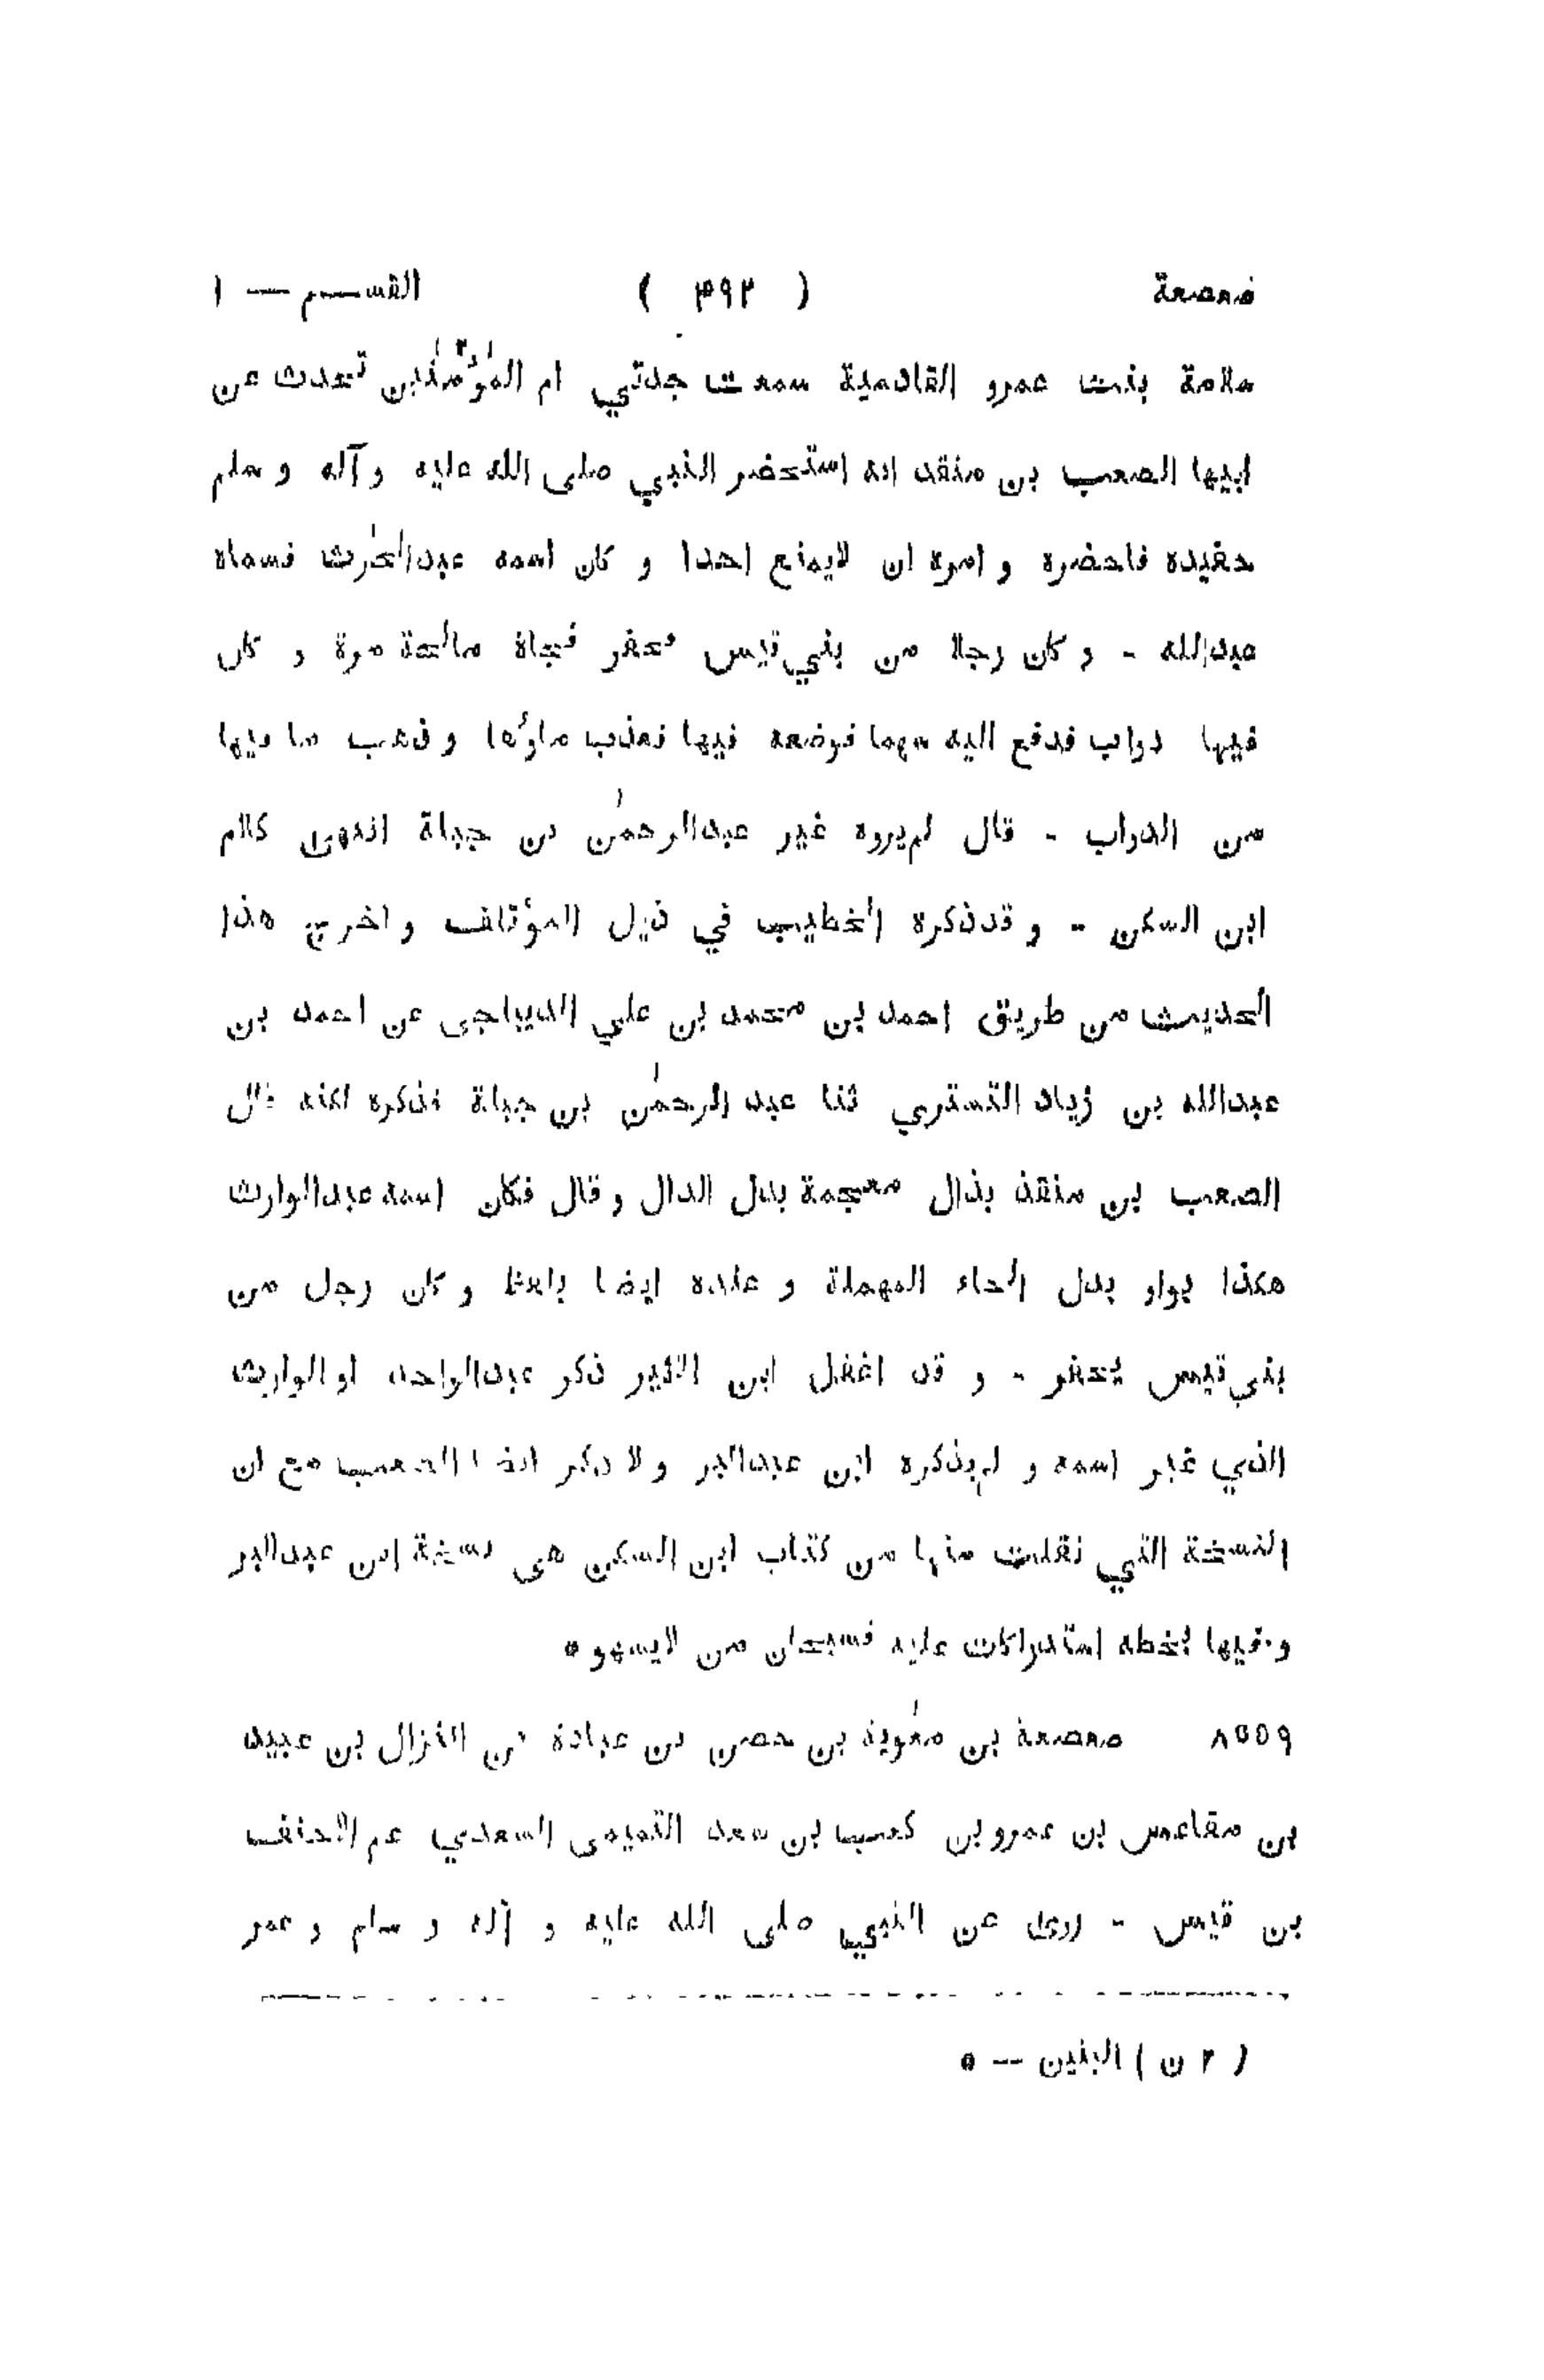 صعصعة ( ٣٩٢ ) القسم — ١
سلامة بنت عمرو القادسية سمعت جدتي ام المؤمنين تحدث عن
ابيها الصعب بن منقد انه استحضر النبي صلى الله عليه وآله و سلم
حفيده فاحضره و امره ان لايمنع احدا و كان اسمه عبدالحرث فسماه
عبدالله - و كان رجلا من بني قيس مالحة مرة و كان
فيها دواب فدفع اليه سهما فوضعه فيها فعذب ماؤها و ذهب ما فيها
من الدواب - قال لم يروه غير عبدالرحمن بن جبلة انتهى كلام
ابن السكن - و قد ذكره الخطيب في ذيل المؤتلف و اخرج هذا
الحديث من طريق احمد بن محمد بن علي الديباجى عن احمد بن
عبدالله بن زياد التستري ثنا عبد الرحمن بن جبلة فذكره لكنه قال
الصعب بن منقذ بذال معجمة بدل الدال و قال فكان اسمه عبدالوارث
هكذا بواو بدل الحاء المهملة و عنده ايضا بلفظ و كان رجل من
بني قيس يحفر - و قد اغفل ابن الاثير ذكر عبدالواحد او الوارث
الذي غير اسمه و لم يذكره ابن عبدالبر و لا ذكر ايضا الصعب مع ان
النسخة التي نقلت منها من كتاب ابن السكن هى نسخة ابن عبدالبر
و فيها بخطه استدراكات عليه فسبحان من لايسهو ٥
٨٥٥٩ صعصعة بن معوية بن حصن بن عبادة بن النزال بن عبيد
بن مقاعس بن عمرو بن كعب بن سعد التميمى السعدي عم الاحنف
بن قيس - روى عن النبي صلى الله عليه و آله و سلم و عمر
( ٢ ن ) البنين — ٥